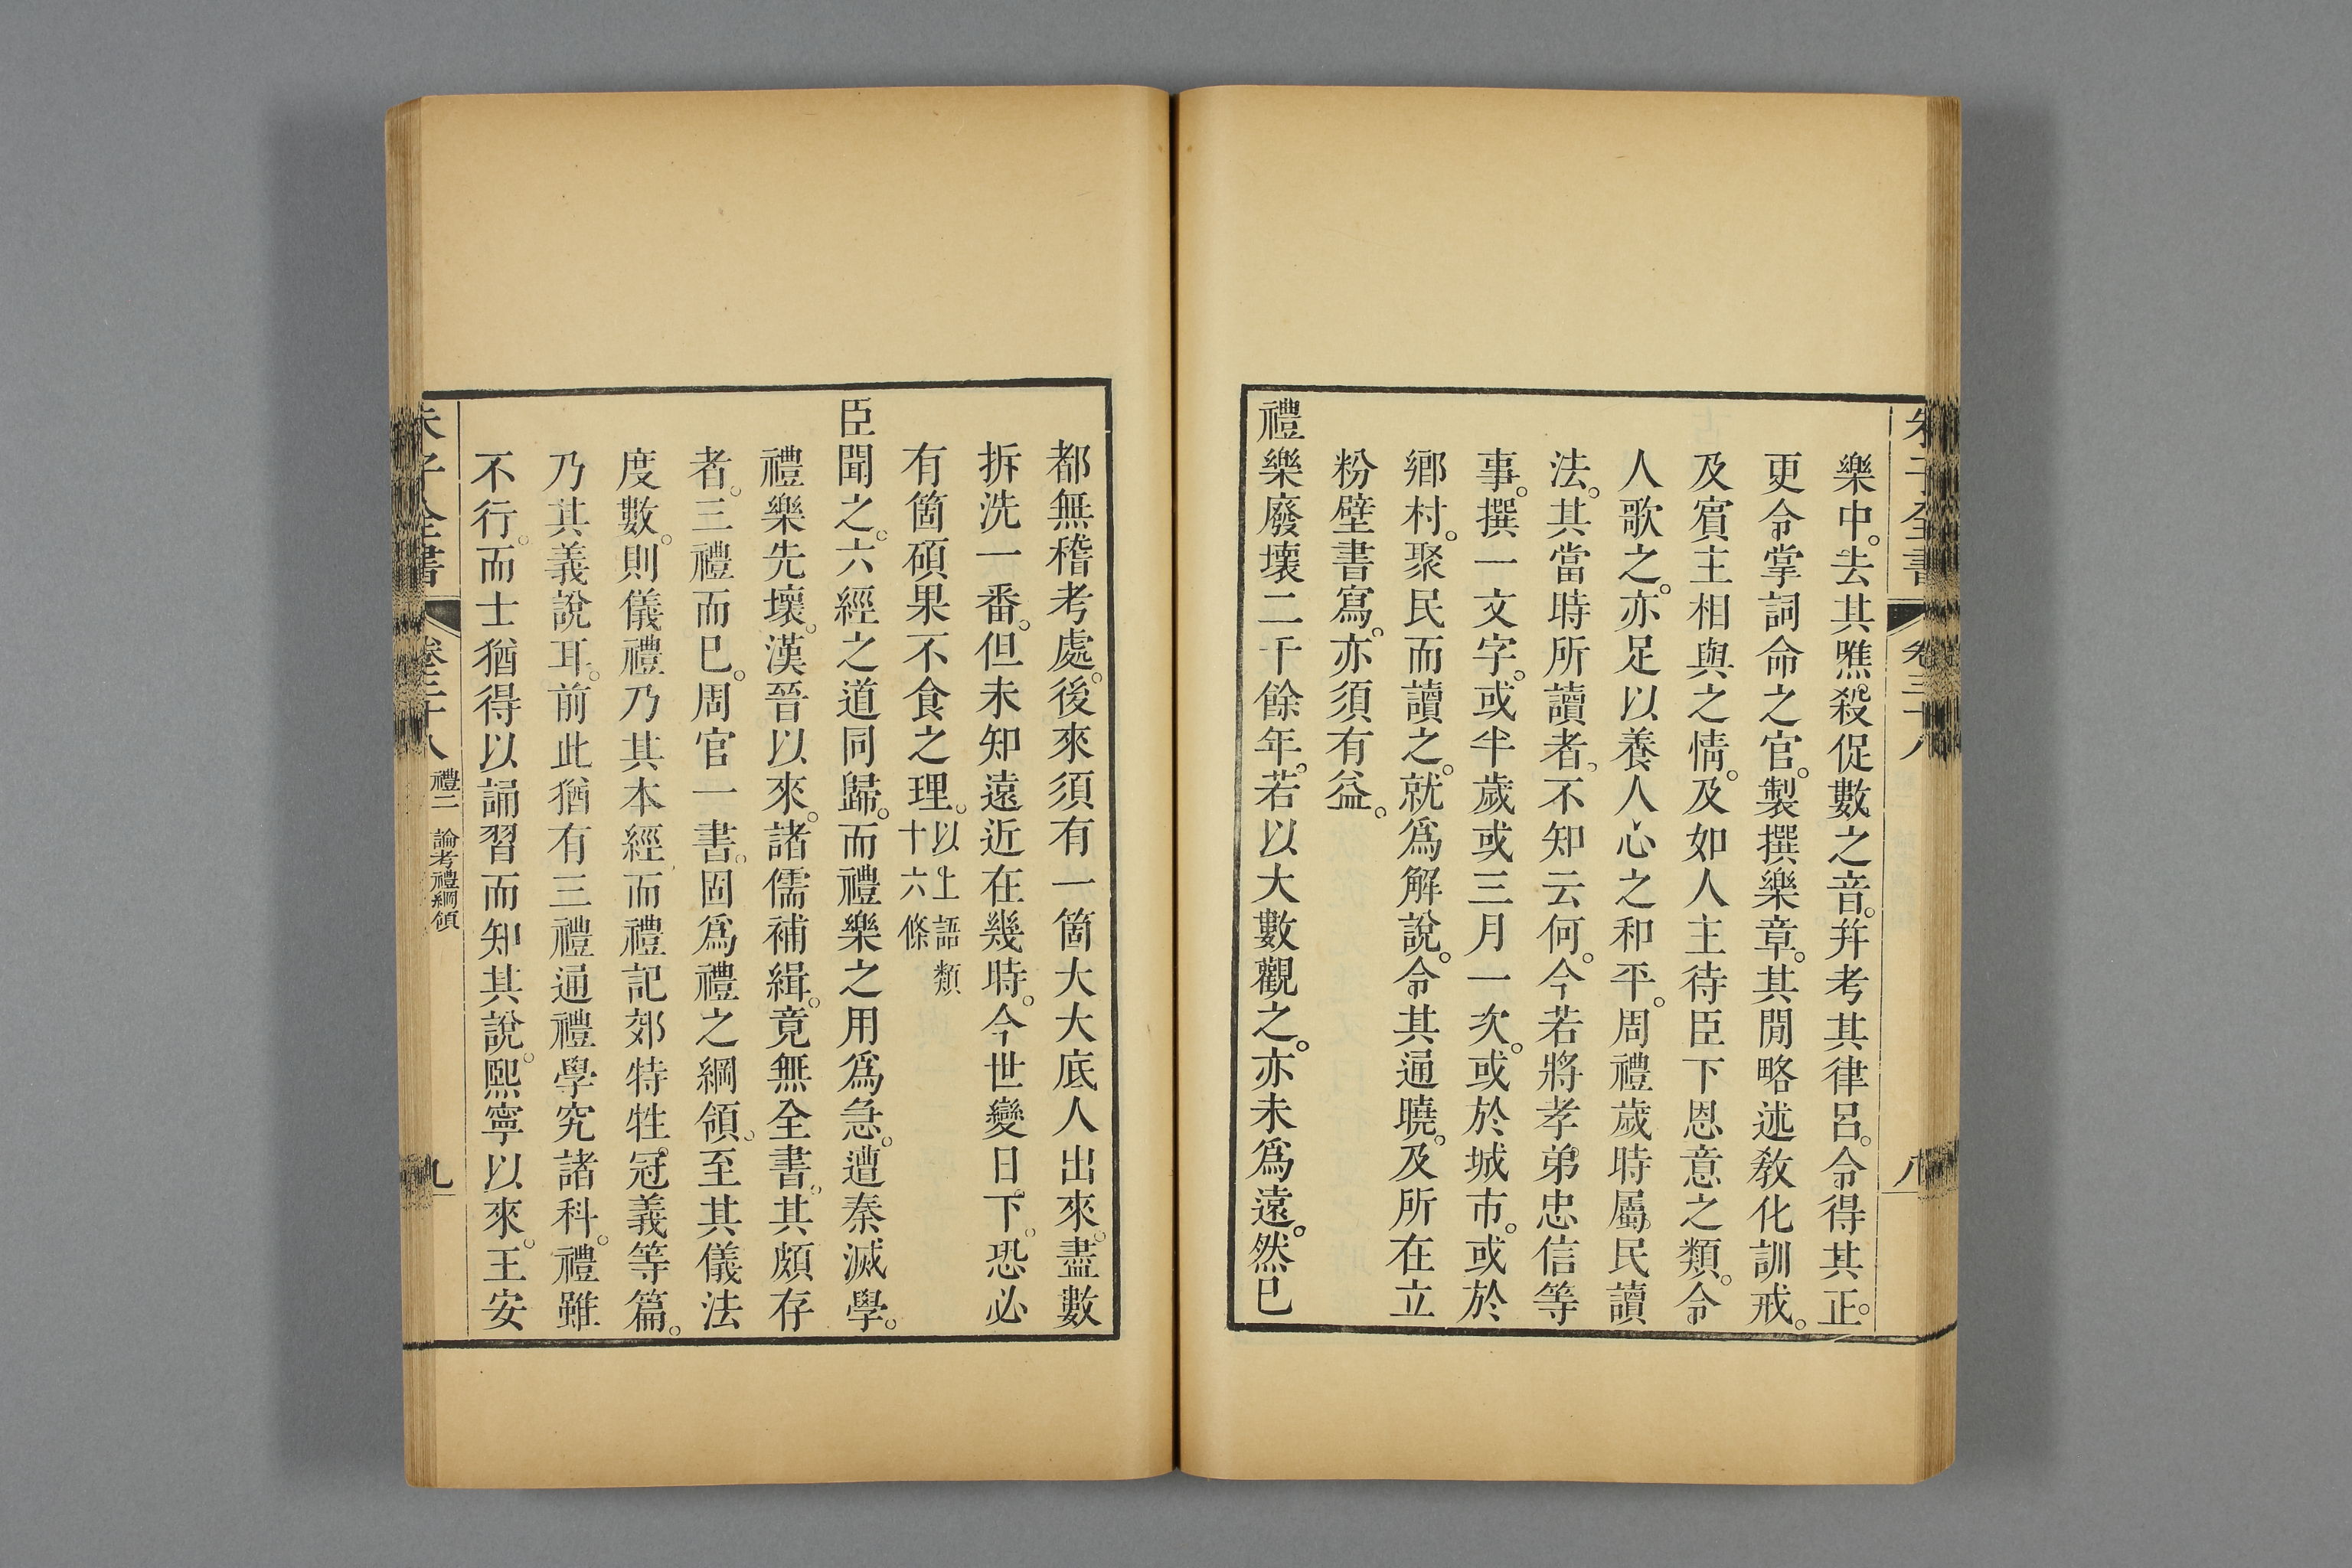 朱子全書 卷三十八 八
樂中。去其噍殺促數之音。幷考其律呂。令得其正。
更令掌詞命之官。製撰樂章。其閒略述敎化訓戒。
及賓主相與之情。及如人主待臣下恩意之類。令
人歌之。亦足以養人心之和平。周禮歲時屬民讀
法。其當時所讀者。不知云何。今若將孝弟忠信等
事。撰一文字。或半歲或三月一次。或於城市。或於
鄕村。聚民而讀之。就爲解說。令其通曉。及所在立
粉壁書寫。亦須有益。
禮樂廢壞二千餘年。若以大數觀之。亦未爲遠。然已
都無稽考處。後來須有一箇大大底人出來。盡數
拆洗一番。但未知遠近在幾時。今世變日下。恐必
有箇碩果不食之理。以上語類十六條
臣聞之。六經之道同歸。而禮樂之用爲急。遭秦滅學。
禮樂先壞。漢晉以來。諸儒補緝。竟無全書。其頗存
者。三禮而已。周官一書。固爲禮之綱領。至其儀法
度數。則儀禮乃其本經。而禮記郊特牲。冠義等篇。
乃其義說耳。前此猶有三禮通禮學究諸科。禮雖
不行。而士猶得以誦習而知其說。熙寧以來。王安
朱子全書 卷三十八 禮二 論考禮綱領 九